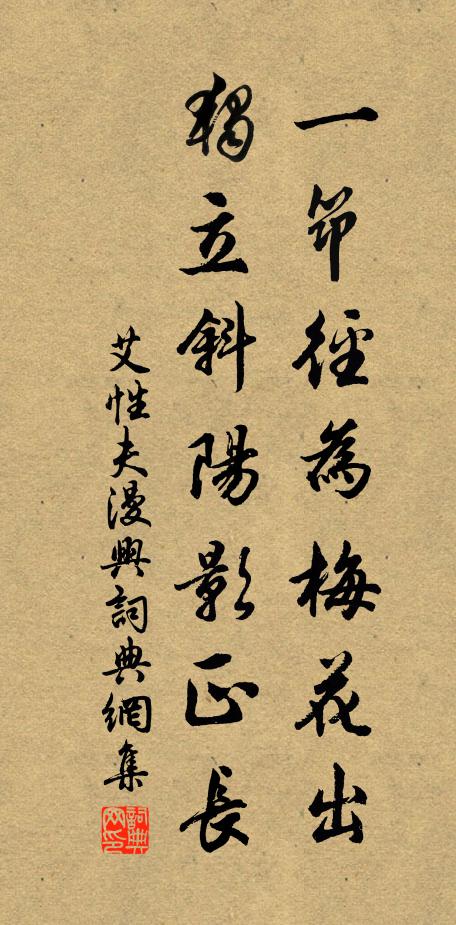 一笻徑為梅花出
獨立斜陽影正長
艾性夫漫興詞典網集
詞典網印